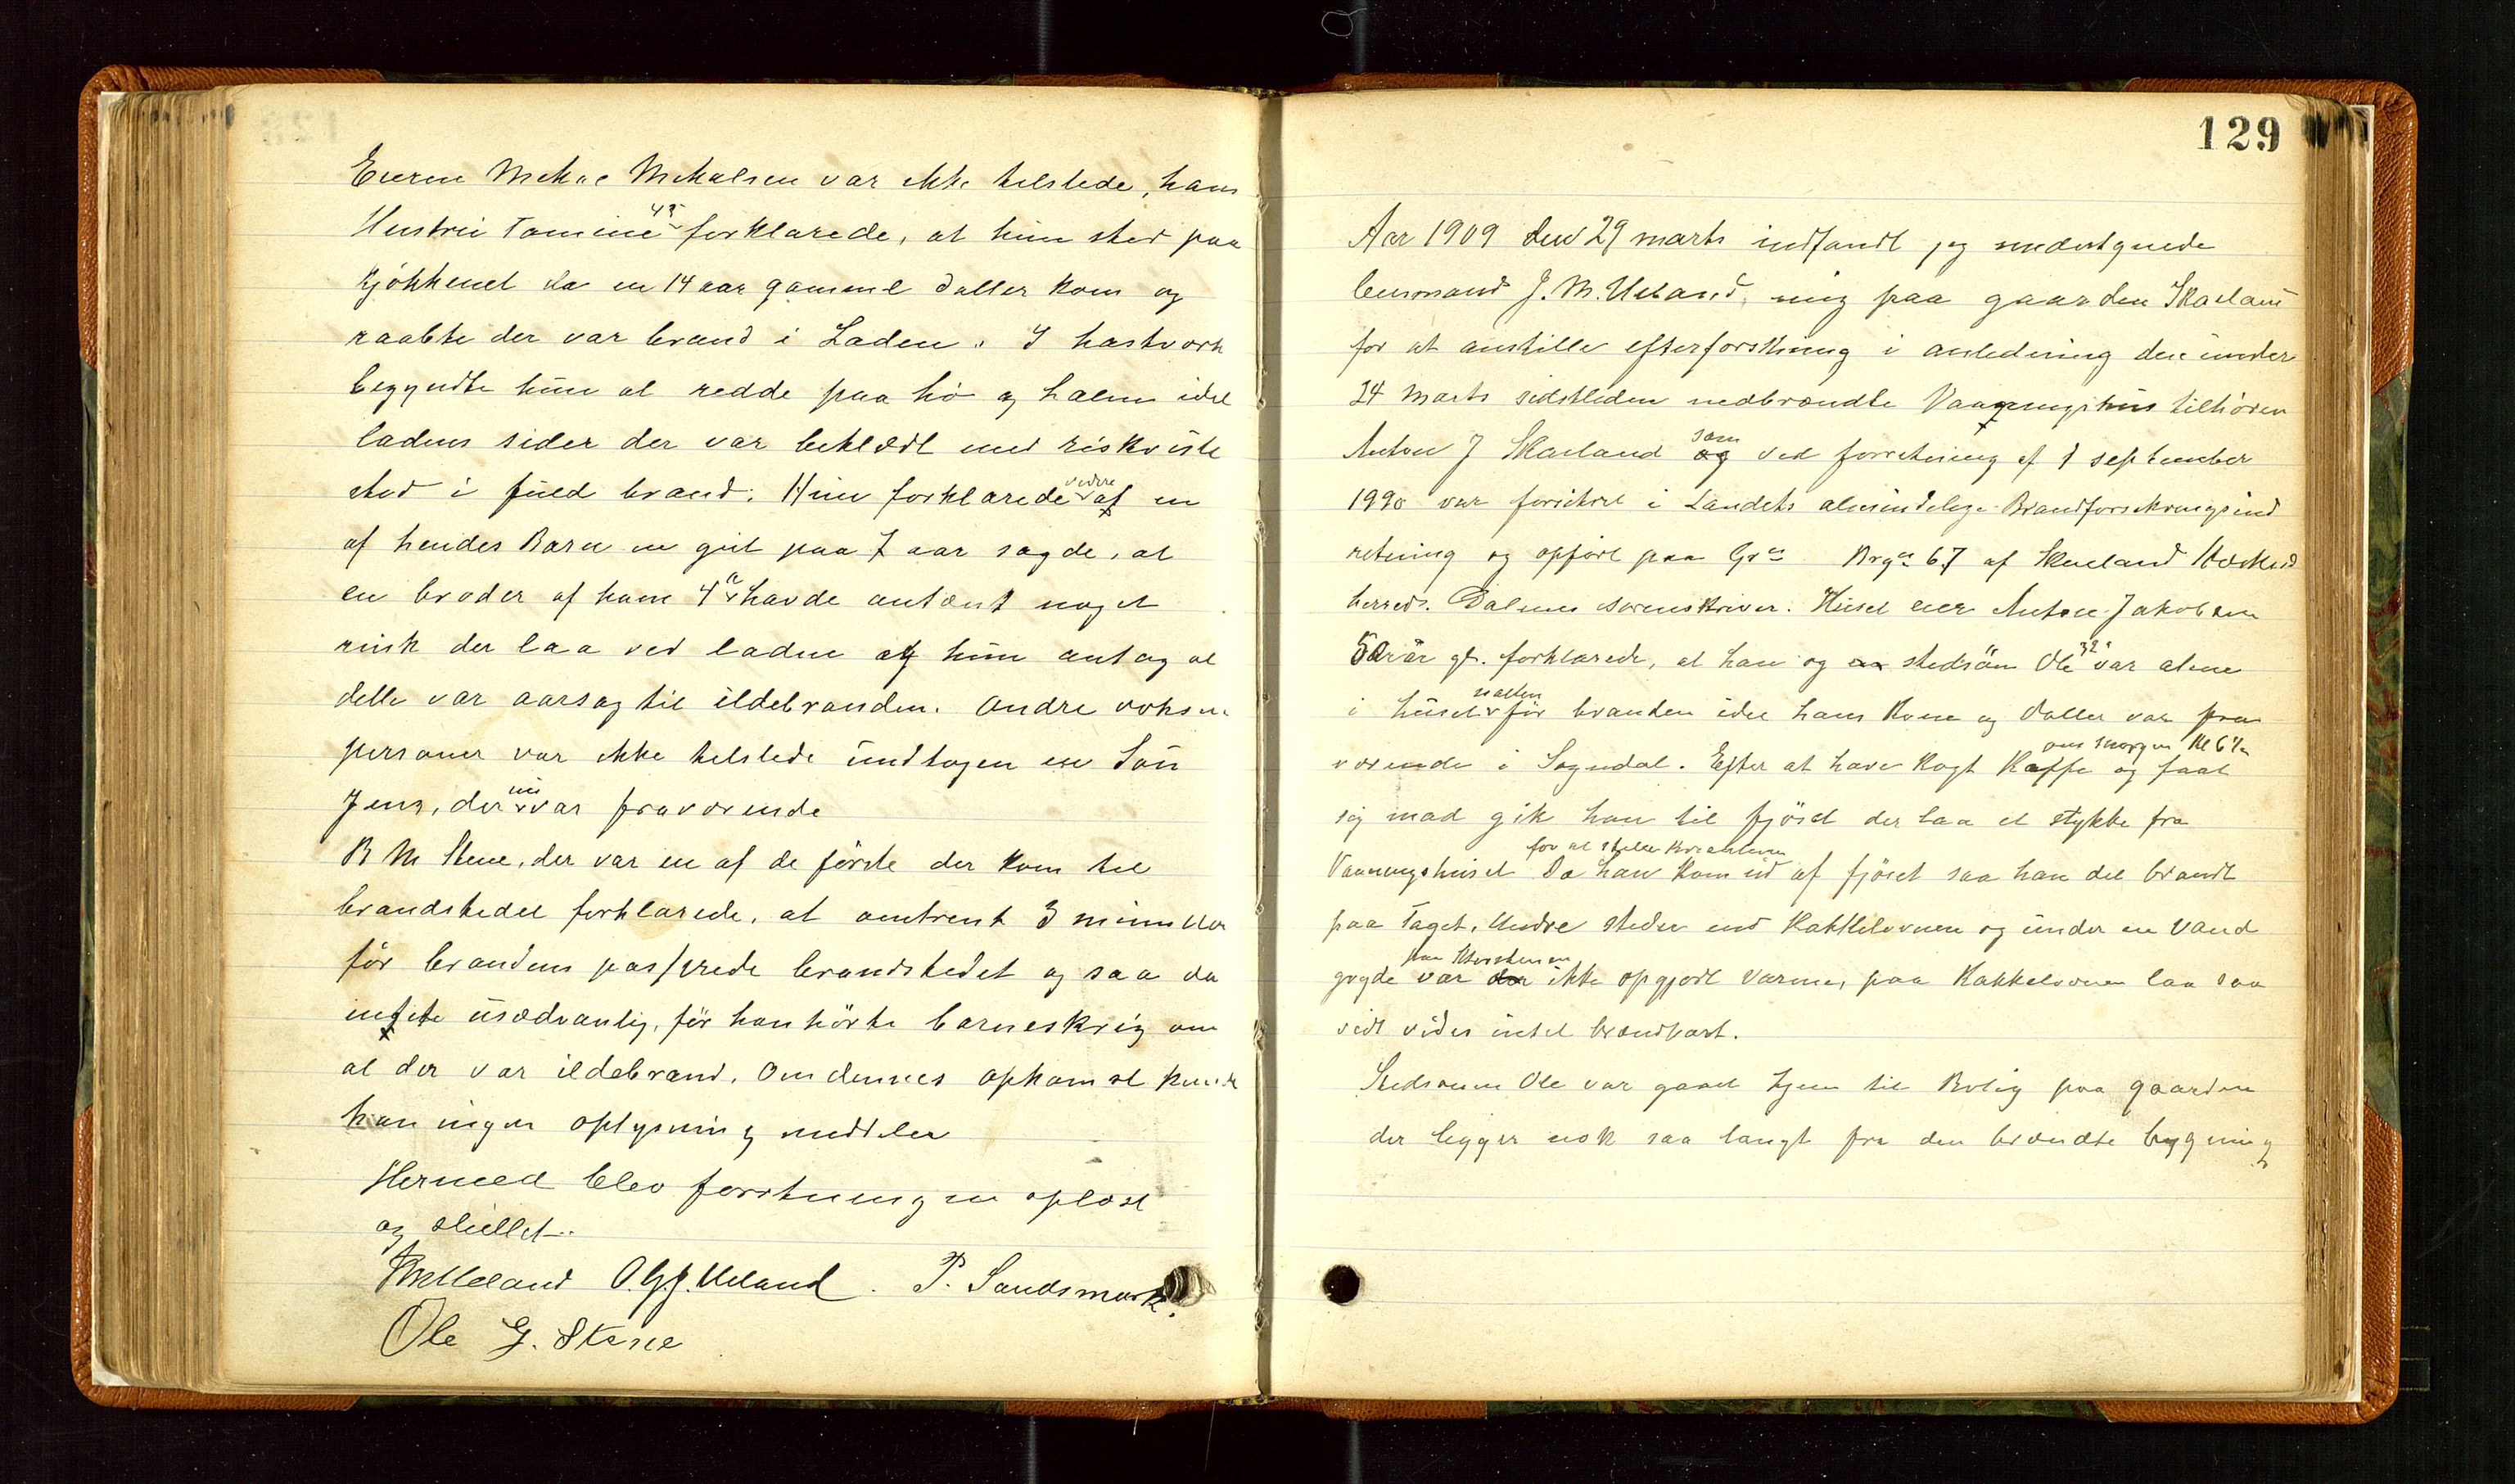 Eieren Mikae Mikalsen var ikke tilstede, hans
Hustru Tomine 43 forklarede, at hun stod paa
Kjøkkenet da en 14 aar gammel datter kom og
raabte der var brand i Laden. I hastværk
begyndte hun at redde paa hø og halm idet
ladens sider der var beklædt med riskviste
stod i fuld brand. Hun forklarede videre at en
af hendes Barn en gut paa 7 aar sagde, at
en broder af ham 4 a havde antændt noget
risk der laa ved laden og hun antog at
dette var aarsag til ildebranden. Andre voksne
personer var ikke tilstede undtagen en Søn
Jens, der nu var fraværende
B M Stene, der var en af de første der kom til
brandstedet forklarede, at omtrent 3 minutter
før branden passerede brandstedet og saa da
intet usædvanlig, før han hørte barneskrig om
at der var ildebrand. Om dennes opkomst kunde
han ingen oplysning meddele
Hermed blev forretningen oplæst
og sluttet.
JMUeland O.G.J. Ueland. P. Sandsmark.
Ole G. Stene
129
Aar 1909 den 29 marts indfandt jeg undertegnede
lensmand J. M. Ueland, mig paa gaarden Skarland
for at anstille efterforskning i anledning den under
24 Marts sidstleden nedbrændte Vaaningshus tilhøren
Anton J Skarland som og ved forretning af 1 september
1990 var forsikret i Landets almindelige Brandforsikringsind
retning og opført paa Grn Brgn 67 af Skarland
herred. Dalenes sorenskriver. Huset eier Anton Jakobsen
50 aar gl. forklarede, at han og en stedsøn Ole 32 var alene
i huset natten før branden idet hans Kone og datter var fra
værende i Sogndal. Efter at have kogt Kaffe om morgen Kl 6½ og faat
sig mad gik han til fjøset der laa et stykke fra
Vaaningshuset for at stelle Kreaturen Da han kom ud af fjøset saa han det brandt
paa Taget. Andre steder end Kakkelovnen og under en Vand
gryde paa Skorstenen var der ikke opgjort Varme, paa Kakkelovnen laa saa
vidt vides intet brændbart.
Stedsønen Ole var gaaet hjem til Bolig paa gaarden
der ligger nok saa langt fra den brændte bygning